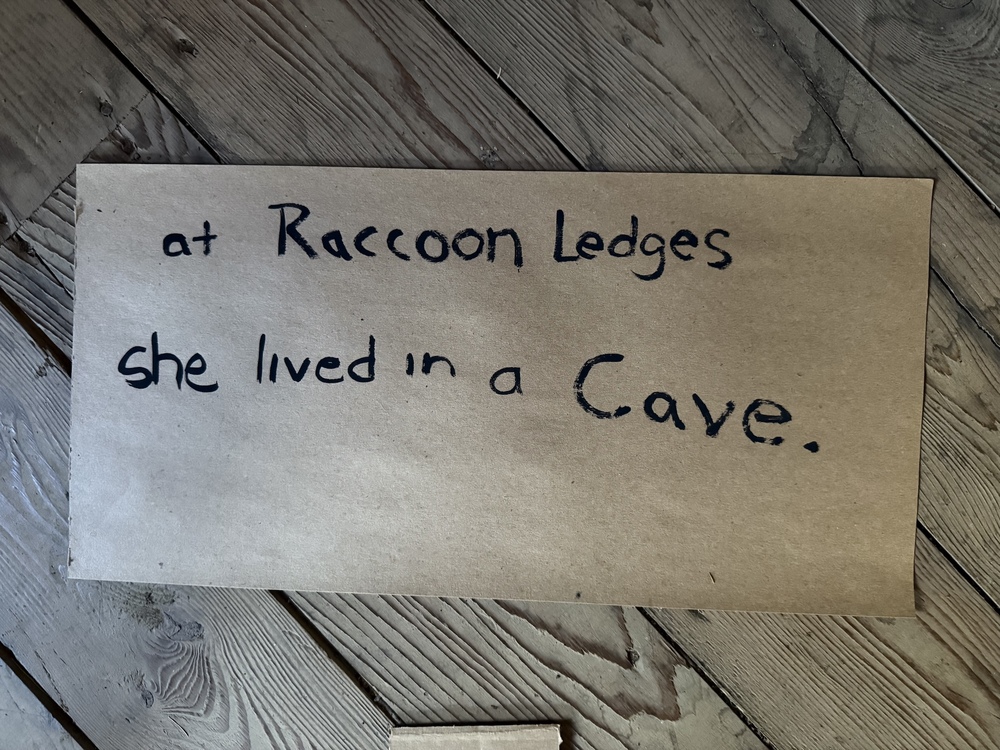 at Raccoon Ledges
she lived in a Cave.